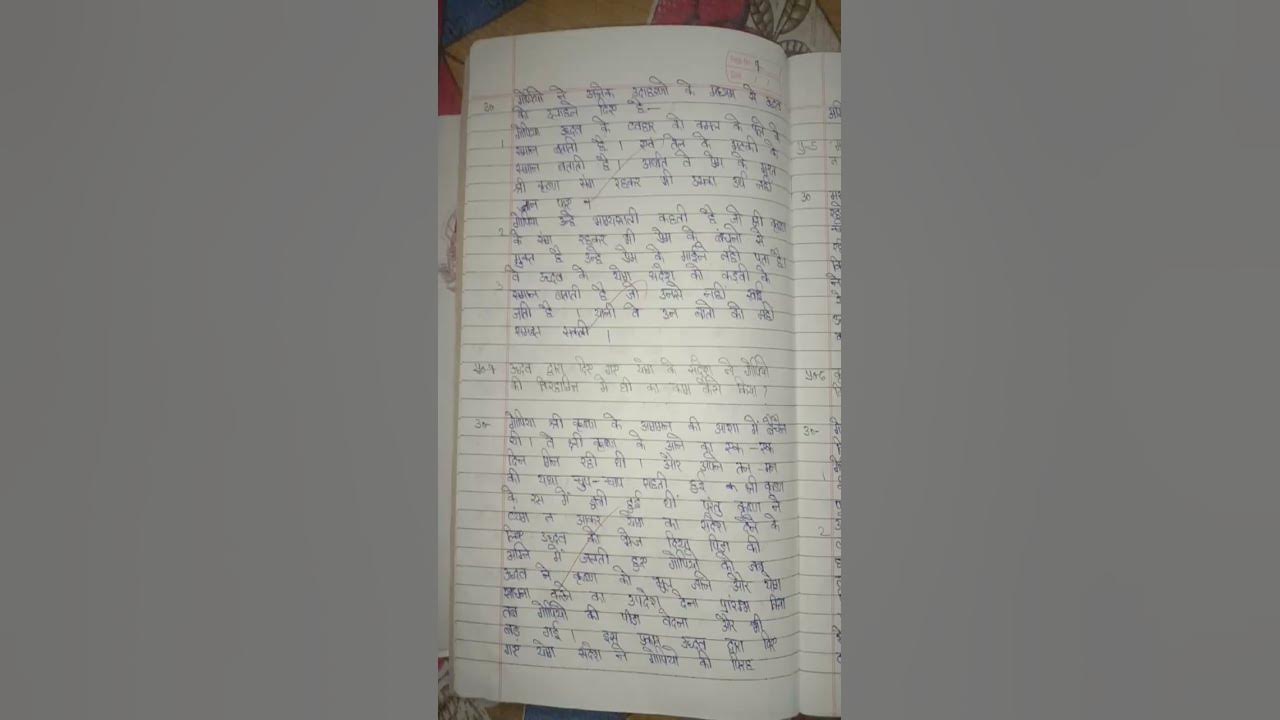 उ० गोपियों ने अनेक उदाहरणों के माध्यम से उद्धव
को उलाहने दिए है:-
1 गोपिया उद्धव के व्यवहार को कमल के पत्ते के
समान बताती है । एवं तेल के मटकी के
समान बताती है । अर्थात वे प्रेम के
श्री कृष्ण संग रहकर भी उसका अर्थ नही
जान पाए
2 गोपिया उन्हे भाग्यशाली कहती है जो श्री कृष्ण
के संग रहकर भी प्रेम के बंधनो से
मुक्त है उन्हे प्रेम के माईने नही पता है।
3 वे उद्धव के योग संदेश को कडवी के
समान बताती है जो उनसे नही खाई
जाती है । यानी वे उन बातो को नही
समझ सकती ।
प्र०-4 उद्धव द्वारा दिए गए योग के संदेश ने गोपियों
की विरहाग्नि मे घी का काम कैसे किया ?
उ०- गोपिया श्री कृष्ण के आगमन की आशा में बैचेन
थी । वे श्री कृष्ण के आने का एक-एक
दिन गिन रही थी । और अपने तन-मन
की व्यथा चुप-चाप सहती हुई श्री कृष्ण
के रस में डूबी हुई थी परंतु कृष्ण ने
न आकर योग का संदेश देने के
लिए उद्धव को भेज दिया की
अग्नि में जलती हुए गोपियों को जब
उद्धव ने कृष्ण को भूल जाने और योग
साधना करने का उपदेश देना प्रारंभ किया
तब गोपियों की पीडा वेदना और भी
बढ गई । इस प्रकार उद्धव द्वारा दिए
गए योग संदेश ने गोपियो की विरह
प्र०-5
उ०
प्र०-6
उ०-
1
2